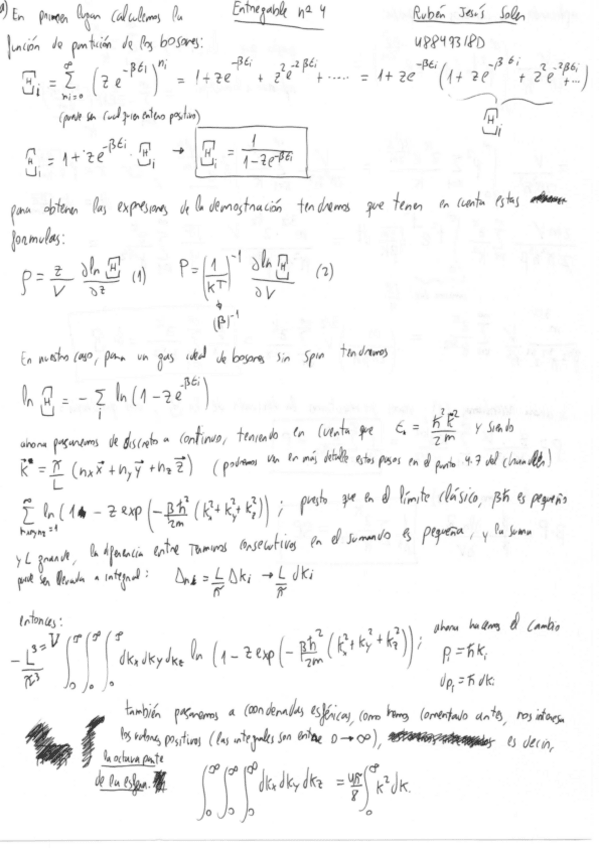 a) En primer lugar calculemos la Entregable nº 4 Rubén Jesús Soler
función de partición de los bosones: 48849318D
Ξ_i = Σ_{n_i=0}^∞ (z e^{-βε_i})^{n_i} = 1 + z e^{-βε_i} + z² e^{-2βε_i} + ..... = 1 + z e^{-βε_i} (1 + z e^{-βε_i} + z² e^{-2βε_i} + ...)
(puede ser cualquier entero positivo) Ξ_i
Ξ_i = 1 + z e^{-βε_i} · Ξ_i → Ξ_i = 1/(1 - z e^{-βε_i})
para obtener las expresiones de la demostración tendremos que tener en cuenta estas
formulas:
ρ = z/V ∂ln Ξ/∂z (1) P = (1/kT)^{-1} ∂ln Ξ/∂V (2)
(β)^{-1}
En nuestro caso, para un gas ideal de bosones sin spin tendremos
ln Ξ = - Σ_i ln (1 - z e^{-βε_i})
ahora pasaremos de discreto a continuo, teniendo en cuenta que ε_i = ħ² k²/2m y siendo
k = π/L (n_x x + n_y y + n_z z) (podremos ver en más detalle estos pasos en el punto 4.7 del chandler)
Σ_{n_x n_y n_z=1}^∞ ln (1 - z exp(-βħ²/2m (k_x² + k_y² + k_z²)) ; puesto que en el límite clásico, βħ es pequeño
y L grande, la diferencia entre terminos consecutivos en el sumando es pequeña, y la suma
puede ser llevada a integral: Δn_i = L/π Δk_i → L/π dk_i
entonces:
-L³=V/π³ ∫_0^∞ ∫_0^∞ ∫_0^∞ dk_x dk_y dk_z ln (1 - z exp(-βħ²/2m (k_x² + k_y² + k_z²)) ; ahora hacemos el cambio
p_i = ħk_i
dp_i = ħ dk_i
también pasaremos a coordenadas esféricas, como hemos comentado antes, nos interesa
los valores positivos (las integrales son entre 0 → ∞), es decir,
la octava parte
de la esfera.
∫_0^∞ ∫_0^∞ ∫_0^∞ dk_x dk_y dk_z = 4π/8 ∫_0^∞ k² dk.